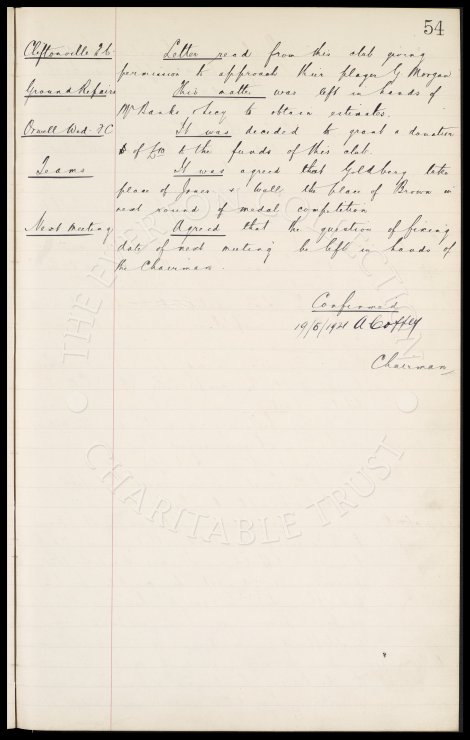 54
Cliftonville F.C. Letter read from this club giving
permission to approach their player G Morgan
Ground Repairs This matter was left in hands of
Mr Banks & Secy to obtain estimates.
Orwell Wed. F.C It was decided to grant a donation
of to the funds of this club.
Teams It was agreed that Goldberg take
place of Jones & Ball the place of Brown in
next round of medal competition
Next meeting Agreed that the question of fixing
date of next meeting be left in hands of
the Chairman.
Confirmed
19/5/1921 A Coffey
Chairman
THE EVERTON COLLECTION
CHARITABLE TRUST